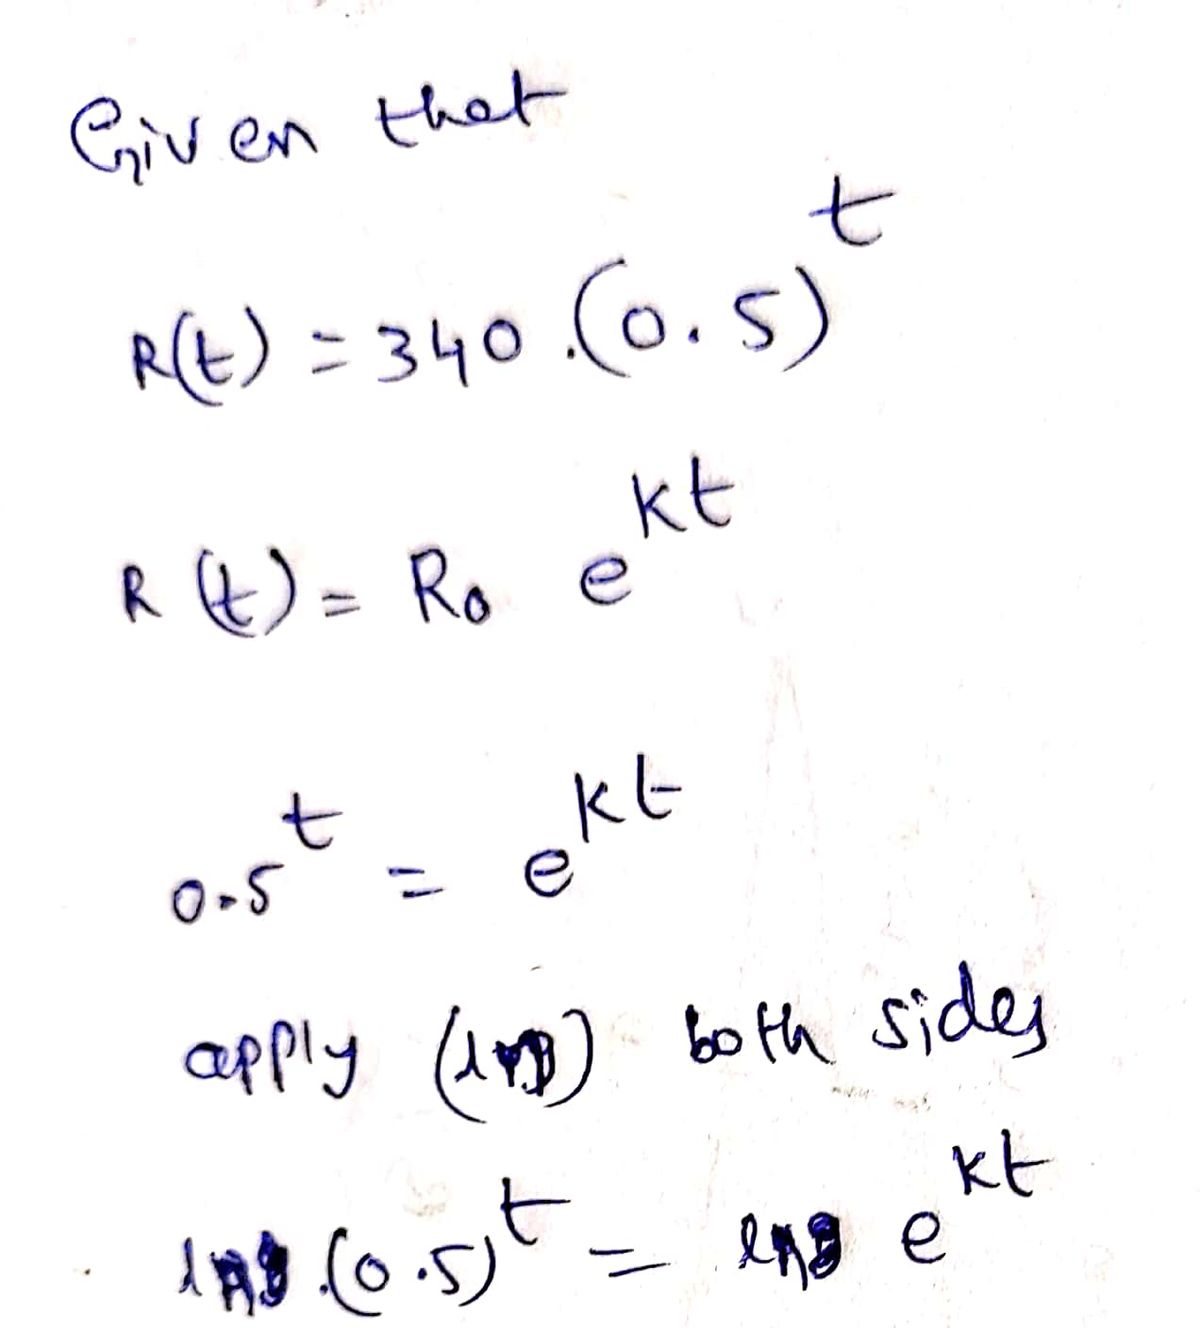 Given that
R(t) = 340 .(0.5)^t
R(t) = R₀ e^kt
0.5^t = e^kt
apply (ln) both sides
ln .(0.5)^t = ln e^kt